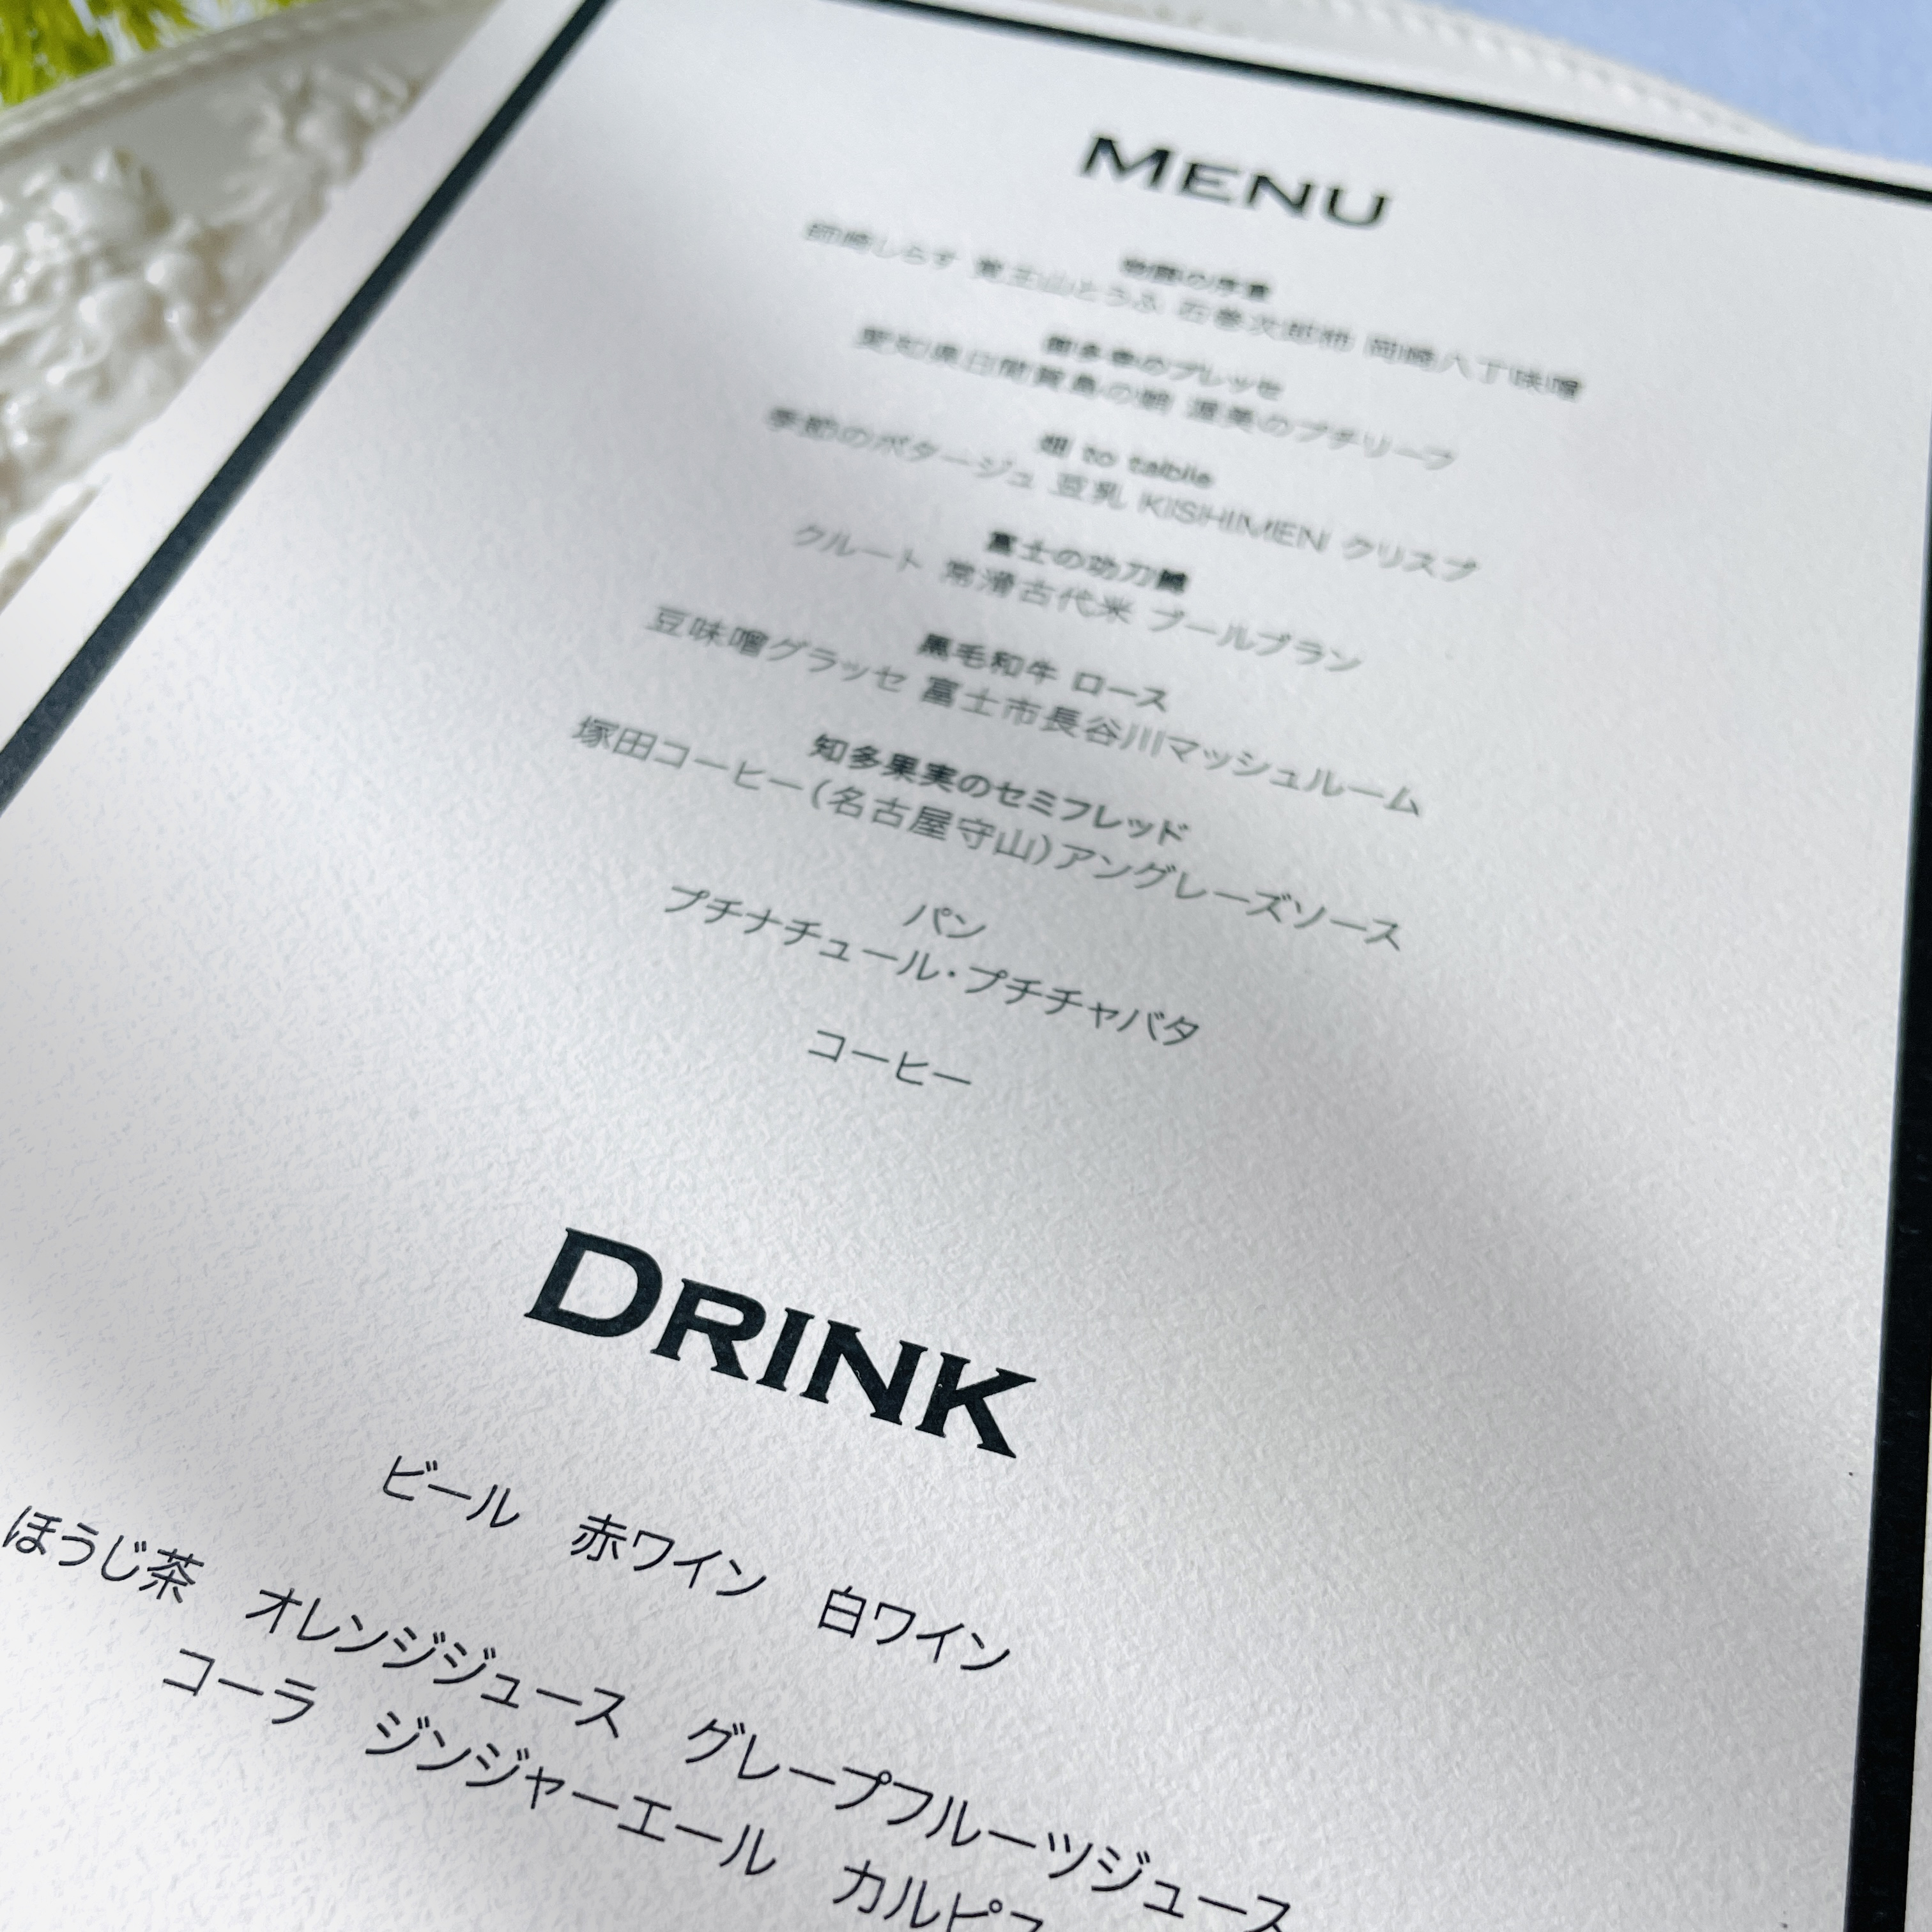 MENU
師崎しらす 覚王山とうふ 石巻次郎柿 岡崎八丁味噌
愛知県日間賀島の蛸 渥美のプチリーフ
畑 to table
季節のポタージュ 豆乳 KISHIMEN クリスプ
富士の功刀鱒
クルート 常滑古代米 ブールブラン
黒毛和牛 ロース
豆味噌グラッセ 富士市長谷川マッシュルーム
知多果実のセミフレッド
塚田コーヒー(名古屋守山)アングレーズソース
パン
プチナチュール・プチチャバタ
コーヒー
DRINK
ビール 赤ワイン 白ワイン
ほうじ茶 オレンジジュース グレープフルーツジュース
コーラ ジンジャーエール カルピス